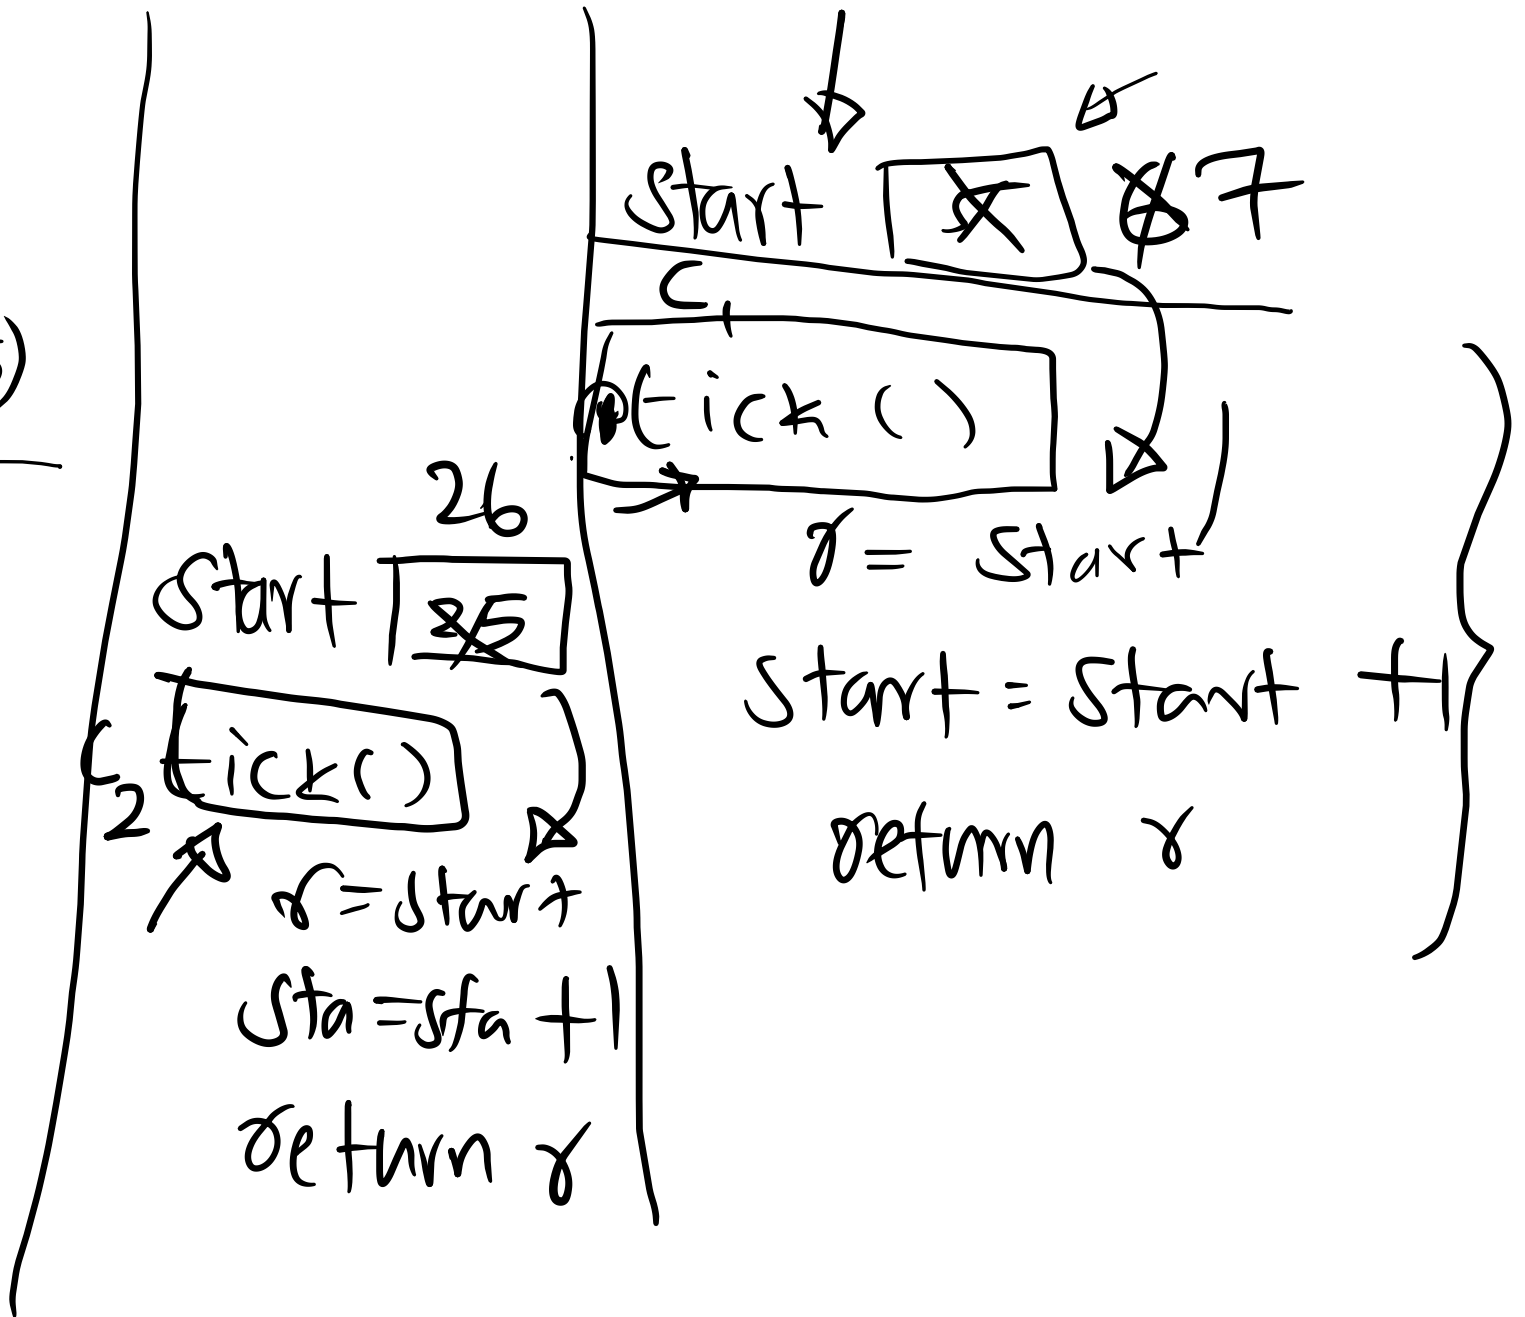 start 5 6 7
C1
tick ( )
r = start
start = start + 1
return r
26
start 25
C2 tick ( )
r = start
sta = sta + 1
return r